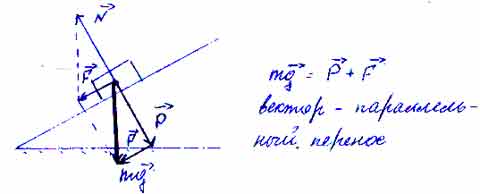 N
F
F
P
mg
mg = P + F
вектор - параллель-
ный перенос